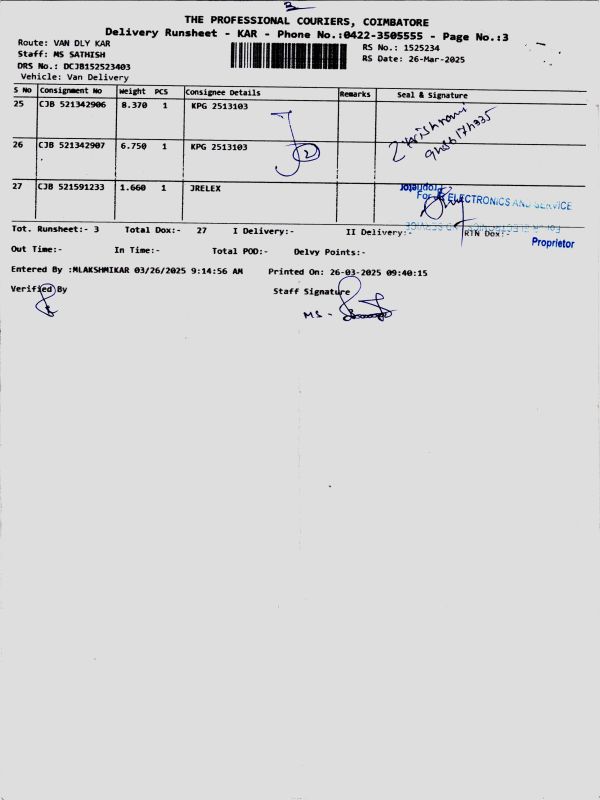 THE PROFESSIONAL COURIERS, COIMBATORE
Delivery Runsheet - KAR - Phone No.:0422-3505555 - Page No.:3
Route: VAN DLY KAR
RS No.: 1525234
Staff: MS SATHISH
RS Date: 26-Mar-2025
DRS No.: DCJB152523403
Vehicle: Van Delivery
S No Consignment No Weight PCS Consignee Details Remarks Seal & Signature
25 CJB 521342906 8.370 1 KPG 2513103
26 CJB 521342907 6.750 1 KPG 2513103
2
27 CJB 521591233 1.660 1 JRELEX
ELECTRONICS AND SERVICE
Proprietor
Tot. Runsheet:- 3 Total Dox:- 27 I Delivery:- II Delivery:- RTN Dox:-
Out Time:- In Time:- Total POD:- Delvy Points:-
Entered By :MLAKSHMIKAR 03/26/2025 9:14:56 AM Printed On: 26-03-2025 09:40:15
Verified By Staff Signature
MS -